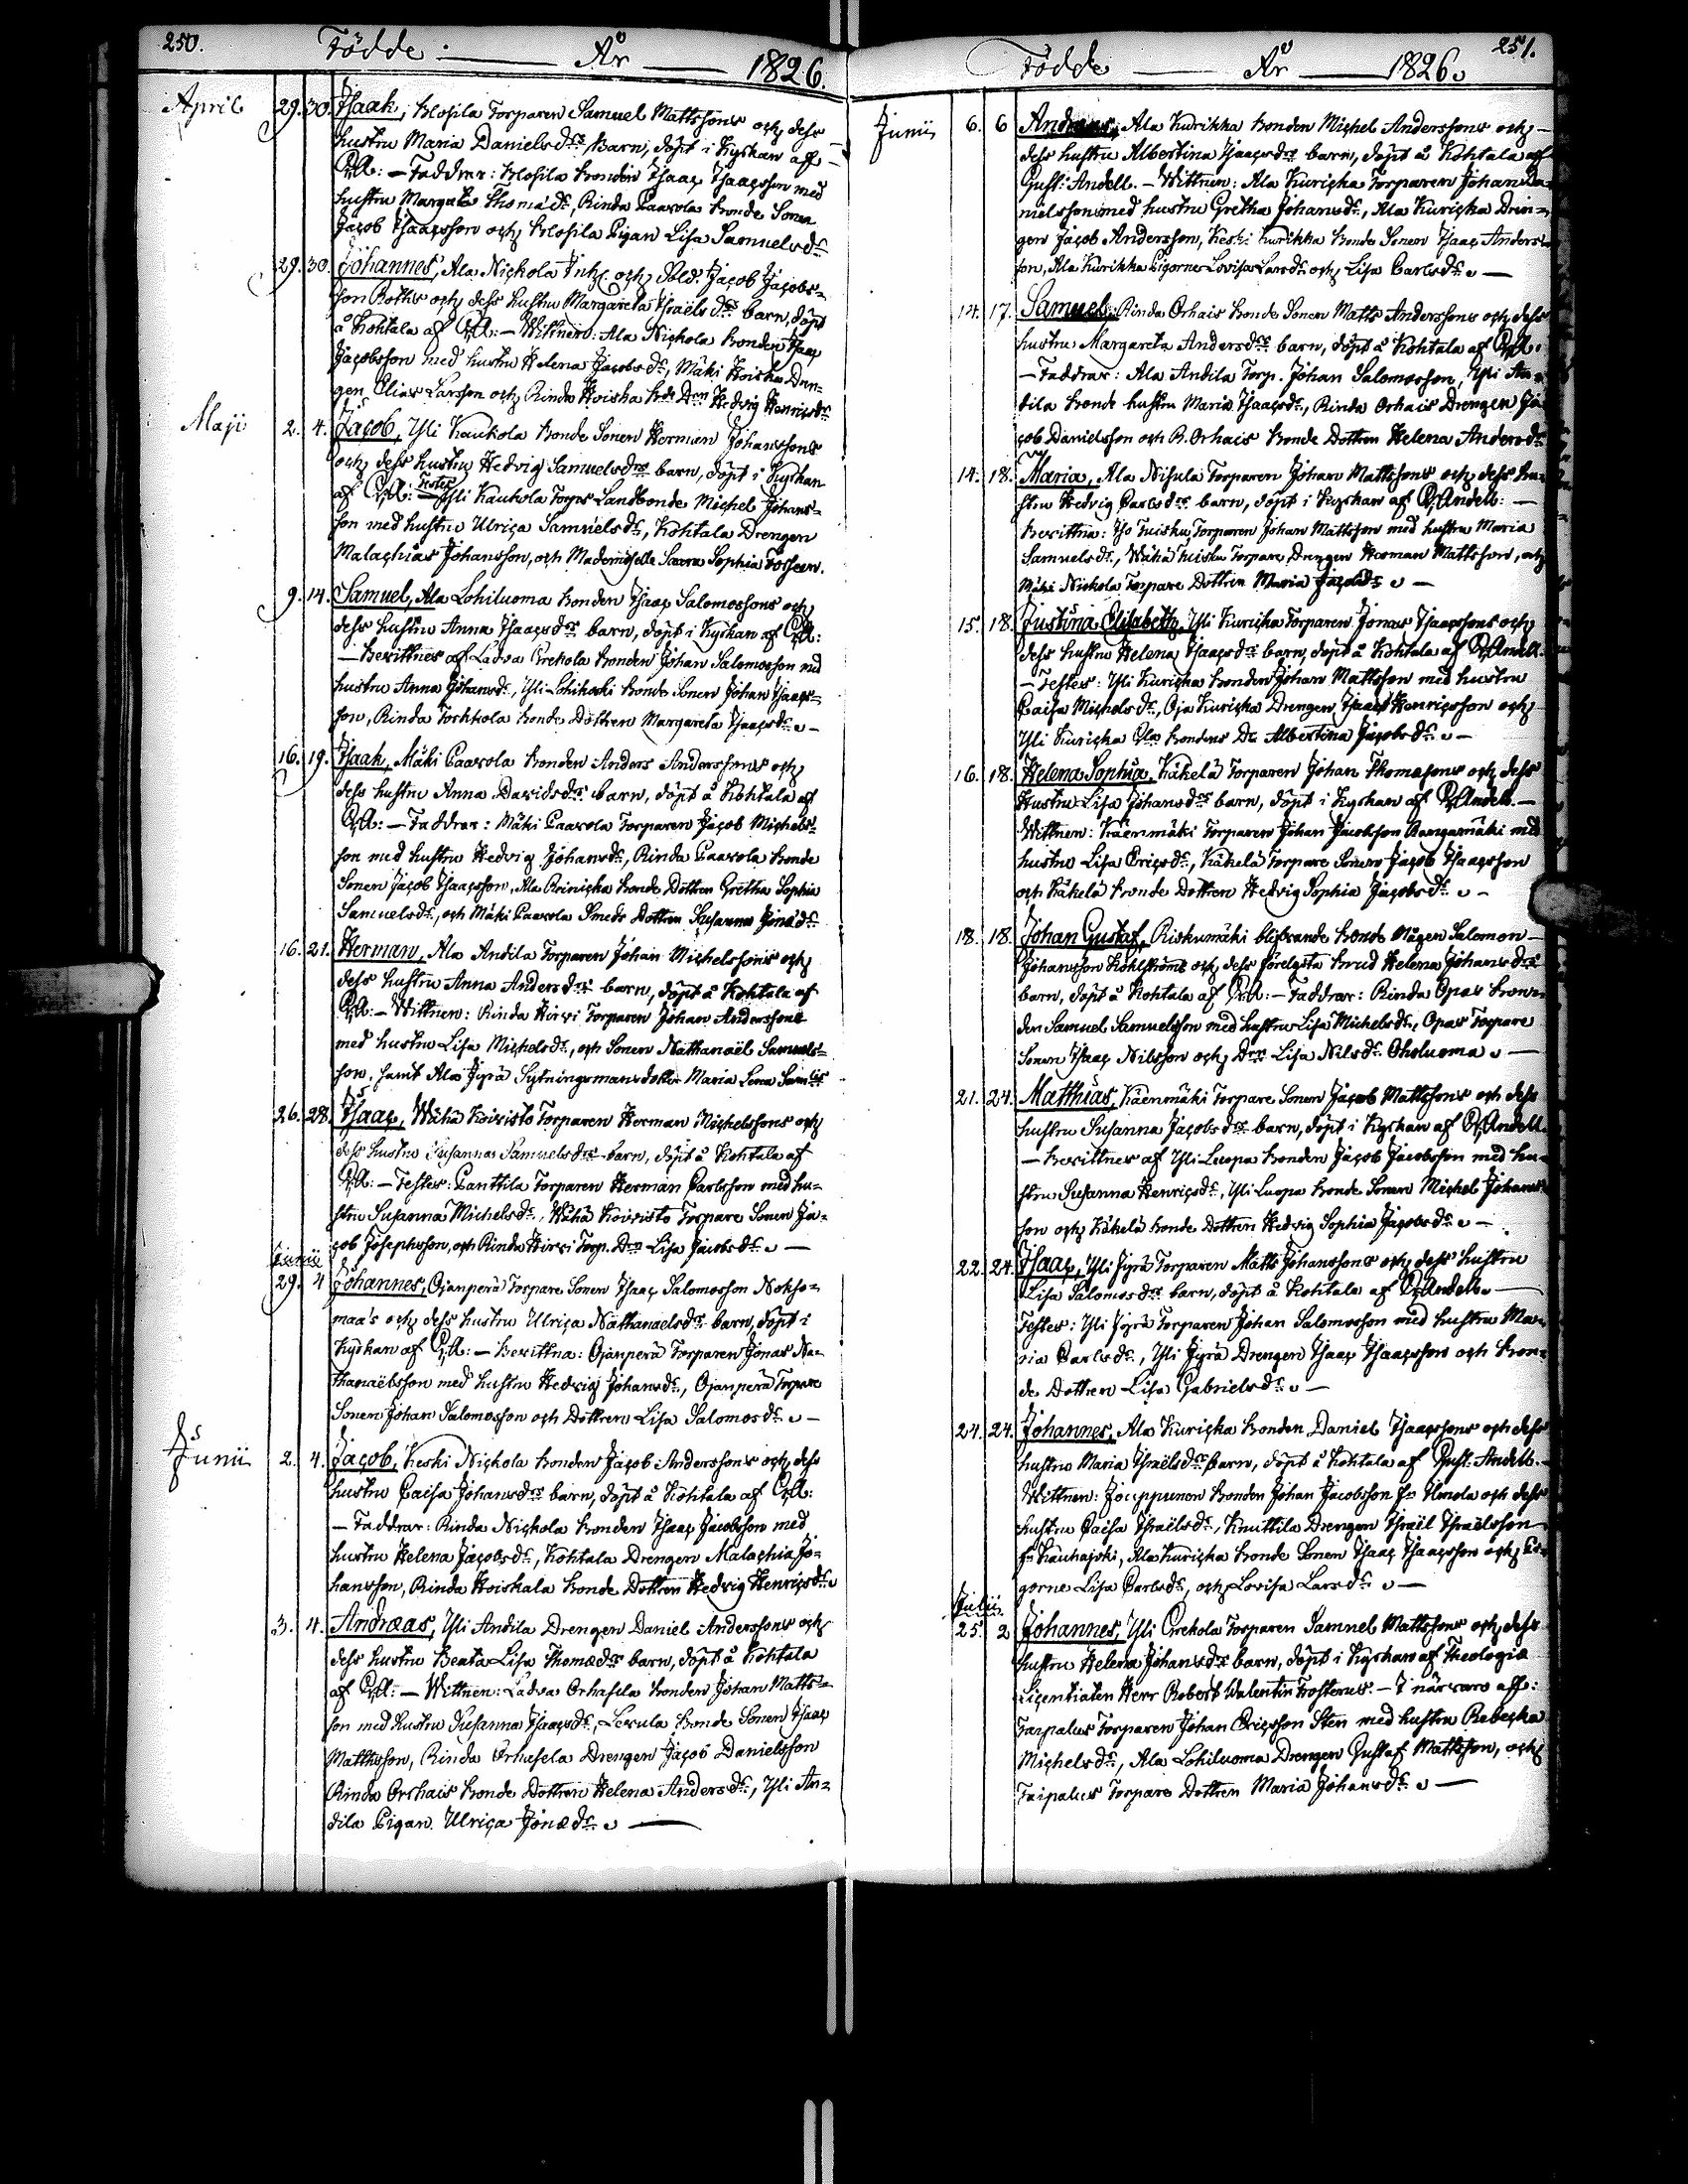 250.
Födde — År — 1826.
April 29. 30. Isaak, Klosila Torparen Samuel Mattssons och dess
hustru Maria Daniels drs Barn, döpt i Kyrkan af
— Faddrar: Klosila Bonden Isaac Isaacsson med
hustru Margeta Thomæ dr, Rinda Paavola Bonde Sonen
Jacob Isaacsson och Klosila Pigan Lisa Samuels dr
29. 30. Johannes, Ala Nickola Inh. och Sold. Jacob Jacobs-
son Boths och dess hustru Margareta Israëls drs barn, döpt
å Kohtala af — Wittnen: Ala Nickola Bonden Isaac
Jacobsson med hustru Helena Jacobs dr, Mäki Hoiska Dren-
gen Elias Larsson och Rinda Hoiska Bde Drn Hedvig Henrics dr
Maji 2. 4. Jacob, Yli Kaukola Bonde Sonen Herman Johanssons
och dess hustru Hedvig Samuels drs barn, döpt i Kyrkan
af — Testes Yli Kaukola Torps Landbonde Michel Johans-
son med hustru Ulrica Samuels dr, Kohtala Drengen
Malachias Johansson, och Mademoiselle Saara Sophia Forseen.
9. 14. Samuel, Ala Lohiluoma Bonden Isaac Salomossons och
dess hustru Anna Isaacs drs barn, döpt i Kyrkan af
— Bevittnes af Ladva Grekola Bonden Johan Salomosson med
hustru Anna Johans dr, Yli Lohikoski Bonde Sonen Johan Isaacs-
son, Rinda Torkkola Bonde Dottren Margareta Isaacs dr
16. 19. Isaak, Mäki Paavola Bonden Anders Anderssons och
dess hustru Anna Davids drs barn, döpt å Kohtala af
— Faddrar: Mäki Paavola Torparen Jacob Michels-
son med hustru Hedvig Johans dr, Rinda Paavola Bonde
Sonen Jacob Isaacsson, Ala Reinicka Bonde Dottren Gretha Sophia
Samuels dr, och Mäki Paavola Smeds Dottren Susanna Jonæ dr
16. 21. Herman, Ala Andila Torparen Johan Michelssons och
dess hustru Anna Anders drs barn, döpt å Kohtala af
— Wittnen: Rinda Hirvi Torparen Johan Anderssons
med hustru Lisa Michels dr, och Sonen Nathanaël Samuels-
son, samt Ala Jyrä Sytningsmans dotter Maria Lena
26. 28. Isaac, Wähä Koivisto Torparen Herman Michelssons och
dess hustru Susanna Samuels drs barn, döpt å Kohtala af
— Testes: Panttila Torparen Herman Carlsson med hu-
stru Susanna Michels dr, Wähä Koivisto Torpare Sonen Ja-
cob Josephsson, och Rinda Hirvi Torp. Drn Lisa Jacobs dr
Junii
29. 4 Johannes, Ojanperä Torpare Sonen Isaac Salomosson Nokso-
maa's och dess hustru Ulrica Nathanaels drs barn, döpt i
Kyrkan af — Bevittna: Ojanperä Torparen Jonas Na-
thanaëlsson med hustru Hedvig Johans dr, Ojanperä Torpare
Sonen Johan Salomosson och Dottren Lisa Salomos dr
Junii 2. 4. Jacob, Keski Nickola Bonden Jacob Anderssons och dess
hustru Caisa Johans drs barn, döpt å Kohtala af
— Faddrar: Rinda Nickola Bonden Isaac Jacobsson med
hustru Helena Jacobs dr, Kohtala Drengen Malachia Jo-
hansson, Rinda Hoiskala Bonde Dottren Hedvig Henrics dr
3. 4. Andreas, Yli Andila Drengen Daniel Anderssons och
dess hustru Beata Lisa Thomæ drs barn, döpt å Kohtala
af — Wittnen: Ladva Orhasela Bonden Johan Matts-
son med hustru Susanna Isaacs dr, Levula Bonde Sonen Isaac
Matthsson, Rinda Orhasela Drengen Jacob Danielsson
Rinda Orhais Bonde Dottren Helena Anders dr, Yli An-
dila Pigan Ulrica Jonæ dr
251.
Födde — År — 1826.
Junii 6. 6 Andreas, Ala Kurikka Bonden Michel Anderssons och
dess hustru Albertina Isaacs drs barn, döpt å Kohtala af
Gust: Andell. — Wittnen: Ala Kuricka Torparen Johan Da-
nielsson med hustru Gretha Johans dr, Ala Kuricka Dren-
gen Jacob Andersson, Keski Kurikka Bonde Sonen Isaac Anders-
son, Ala Kurikka Pigorne Lovisa Lars dr och Lisa Carls dr
14. 17. Samuel, Rinda Orhais Bonde Sonen Matts Anderssons och dess
hustru Margareta Anders drs barn, döpt å Kohtala af
— Faddrar: Ala Andila Torp. Johan Salomosson, Yli An-
dila Bonde hustru Maria Isaacs dr, Rinda Orhais Drengen Ja-
cob Danielsson och R. Orhais Bonde Dottren Helena Anders dr
14. 18. Maria, Ala Nisula Torparen Johan Mattssons och dess hu-
stru Hedvig Carls drs barn, döpt i Kyrkan af Andell: —
Bevittna: Iso Tuisku Torparen Johan Mattsson med hustru Maria
Samuels dr, Wähä Tuisku Torpare Drengen Herman Mattsson, och
Mäki Nickola Torpare Dottren Maria Jacobs dr
15. 18. Justina Elisabeth, Yli Kuricka Torparen Jonas Isaacssons och
dess hustru Helena Isaacs drs barn, döpt å Kohtala af Andell.
— Testes: Yli Kuricka Bonden Johan Mattsson med hustru
Caisa Michels dr, Oja Kuricka Drengen Isaac Henricsson och
Yli Kuricka Bondens Dr Albertina Jacobs dr
16. 18. Helena Sophia, Käkelä Torparen Johan Thomasons och dess
Hustru Lisa Johans drs barn, döpt i Kyrkan af Andell. —
Wittnen: Käenmäki Torparen Johan Jacobsson Rangamäki med
hustru Lisa Erics dr, Käkelä Torpare Sonen Jacob Isaacsson
och Käkelä Bonde Dottren Hedvig Sophia Jacobs dr
18. 18. Johan Gustaf, Riskumäki blifvande Bonde Mågen Salomon
Johansson Kohlströms och dess förelysta Brud Helena Johans drs
barn, döpt å Kohtala af — Faddrar: Rinda Opas Bon-
den Samuel Samuelsson med hustru Lisa Michels dr, Opas Torpare
Sonen Isaac Nilsson och Drn Lisa Nils dr Oholuoma
21. 24. Matthias, Käenmäki Torpare Sonen Jacob Mattssons och dess
hustru Susanna Jacobs drs barn, döpt i Kyrkan af Andell
— Bevittnes af Yli Luopa Bonden Jacob Jacobsson med hu-
stru Susanna Henrics dr, Yli Luopa Bonde Sonen Michel Johans-
son och Käkelä Bonde Dottren Hedvig Sophia Jacobs dr
22. 24. Isaac, Yli Jyrä Torparen Matts Johanssons och dess hustru
Lisa Salomos drs barn, döpt å Kohtala af Andell. —
Testes: Yli Jyrä Torparen Johan Salomosson med hustru Ma-
ria Carls dr, Yli Jyrä Drengen Isaac Isaacsson och Bon-
de Dottren Lisa Gabriels dr
24. 24. Johannes, Ala Kuricka Bonden Daniel Isaacssons och dess
hustru Maria Israëls drs barn, döpt å Kohtala af Gust. Andell.
Wittnen: Jouppunen Bonden Johan Jacobsson fr. Ilmola och dess
hustru Caisa Israëls dr, Knuttila Drengen Israël Israëlsson
fn Kauhajoki, Ala Kuricka Bonde Sonen Isaac Isaacsson och Pi-
gorne Lisa Carls dr, och Lovisa Lars dr
Julii
25. 2 Johannes, Yli Grekola Torparen Samuel Mattssons och dess
hustru Helena Johans drs barn, döpt i Kyrkan af Theologiæ
Licentiaten Herr Robert Valentin Frosterus. — I närvaro aff:
Taipalus Torparen Johan Ericsson Sten med hustru Rebecka
Michels dr, Ala Lohiluoma Drengen Gustaf Mattsson, och
Taipalus Torpare Dottren Maria Johans dr